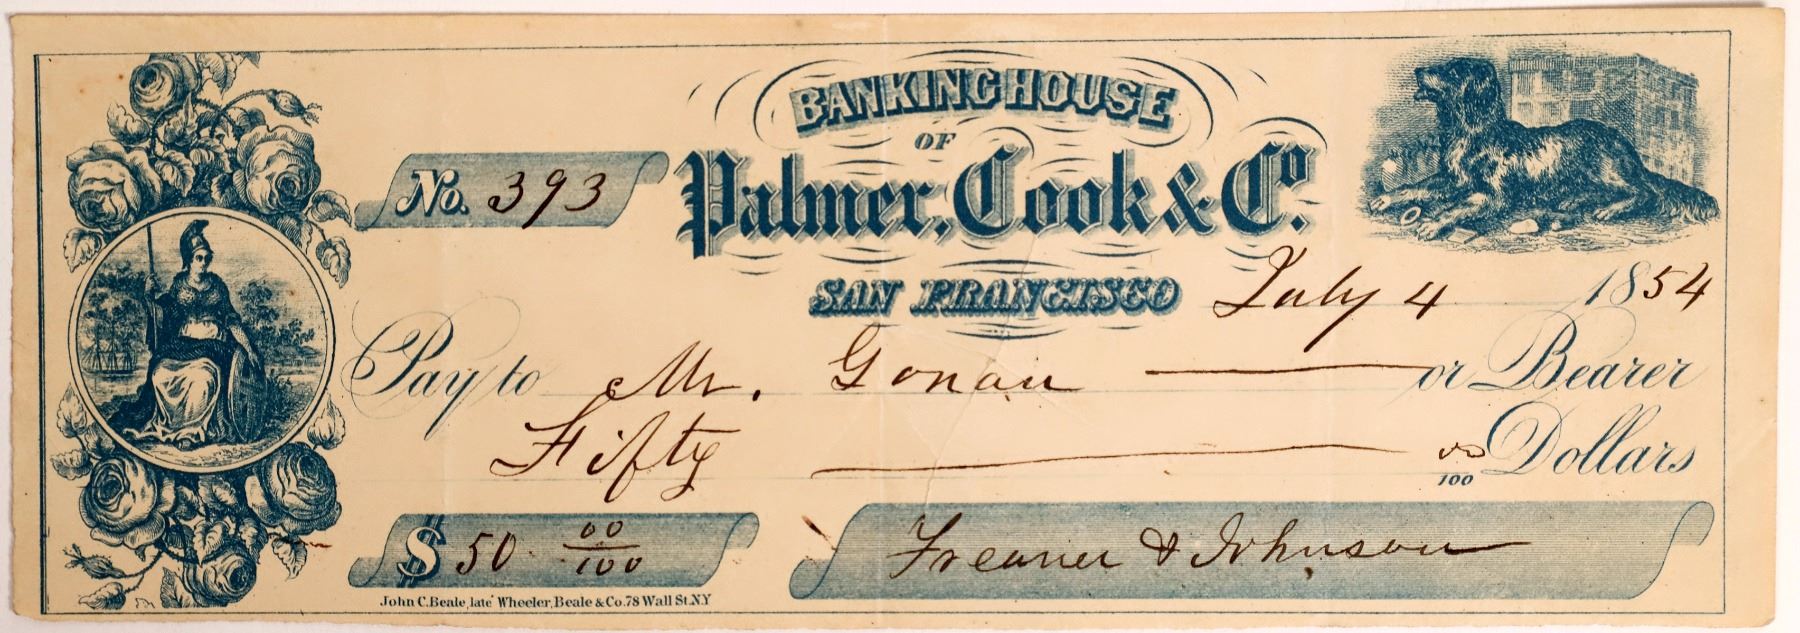 BANKING HOUSE
OF
No. 393
Palmer, Cook & Co.
SAN FRANCISCO
July 4 1854
Pay to Mr. Gonau or Bearer
Fifty 00/100 Dollars
$ 50 00/100
Freaner & Johnson
John C. Beale, late Wheeler, Beale & Co. 78 Wall St. N.Y